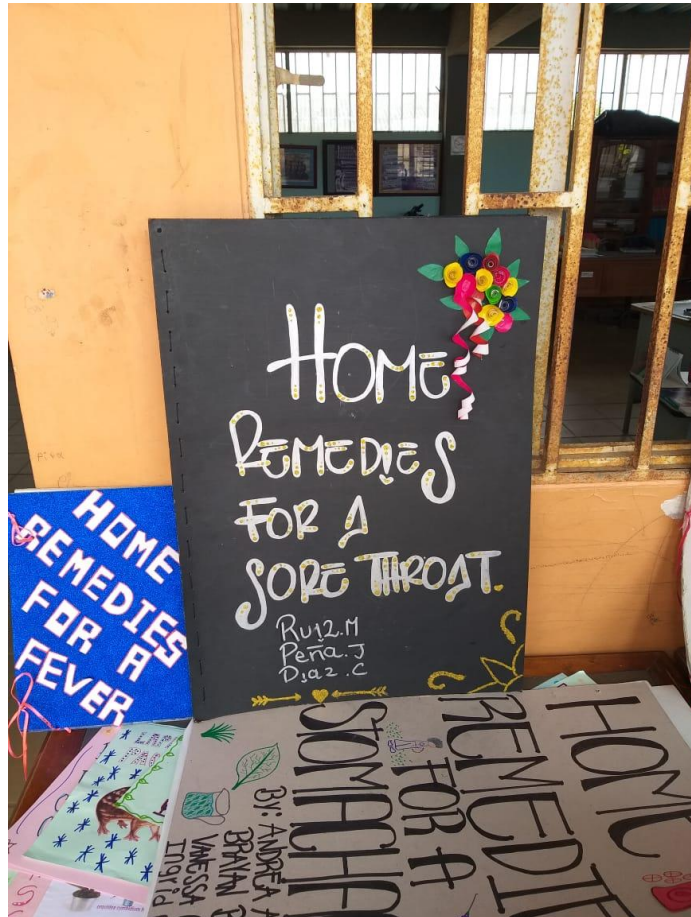 HOME
REMEDIES
FOR A
SORE THROAT.
Ruiz.M
Peña.J
Diaz.C
HOME
REMEDIES
FOR A
FEVER
HOME
REMEDI
FOR A
STOMACHA
By: ANDREA A
BRAYAN
VANESSA
Ingrid